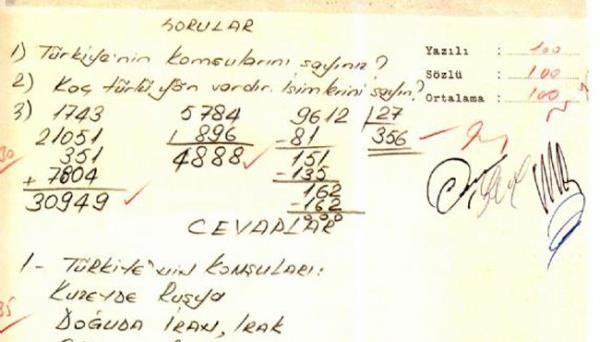 SORULAR
1) Türkiye'nin komşularını sayınız?
Yazılı : 100
2) Kaç türlü yön vardır. İsimlerini sayın?
Sözlü : 100
Ortalama : 100
3) 1743 5784 9612 27
21051 896 -81 356
351 4888 151
+ 7804 -135
30949 162
-162
000
CEVAPLAR
1- TÜRKİYE'NİN KOMŞULARI:
KUZEYDE RUSYA
DOĞUDA İRAN, IRAK